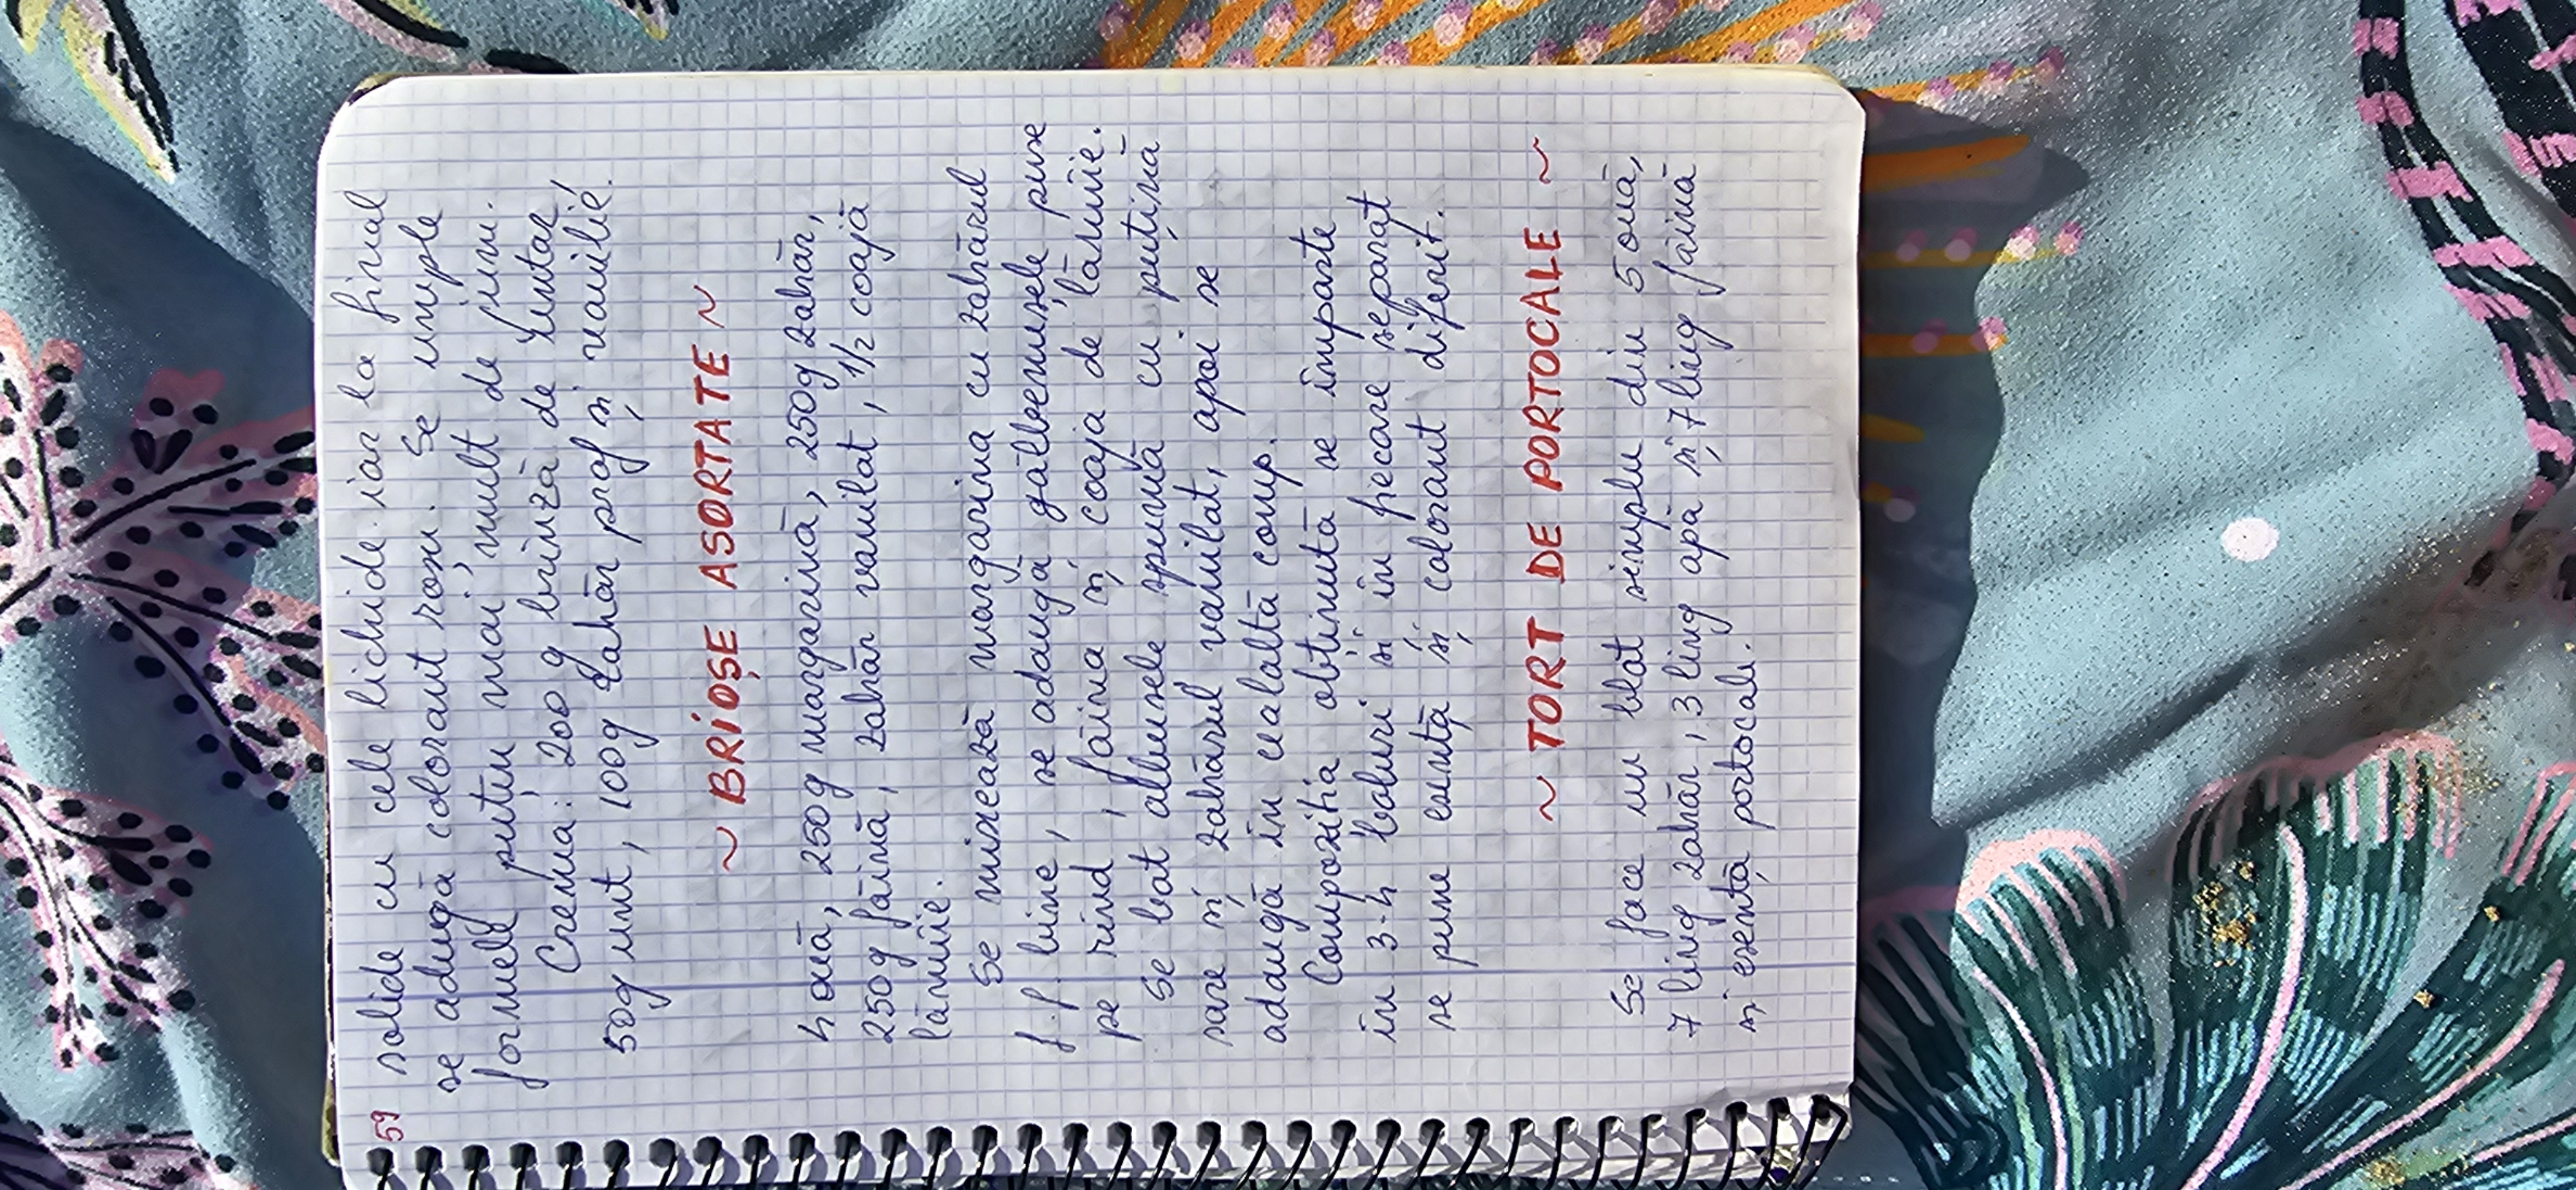 59 solide cu cele lichide iar la final
se adugă colorant roșu. Se umple
formele puțin mai mult de jum.
Crema: 200 g brînză de untar,
50g unt, 100g zahăr praf și vanilie.
~ BRIOȘE ASORTATE ~
4 ouă, 250g margarină, 250g zahăr,
250g făină, zahăr vanilat, 1/2 coajă
lămîie.
Se mixează margarina cu zahărul
f.f. bine, se adaugă gălbenușele puse
pe rînd, făina și coaja de lămîie.
Se bat albușele spumă cu puțină
sare și zahărul vanilat, apoi se
adaugă în cealaltă comp.
Compoziția obținută se împarte
în 3-4 boluri și în fiecare separat
se pune esență și colorant diferit.
~ TORT DE PORTOCALE ~
Se face un blat simplu din 5 ouă,
7 ling zahăr, 3 ling apă și 7 ling făină
și esență portocale.